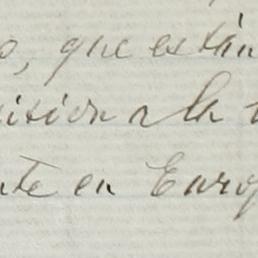 o, que están
ición a la
nte en Europ